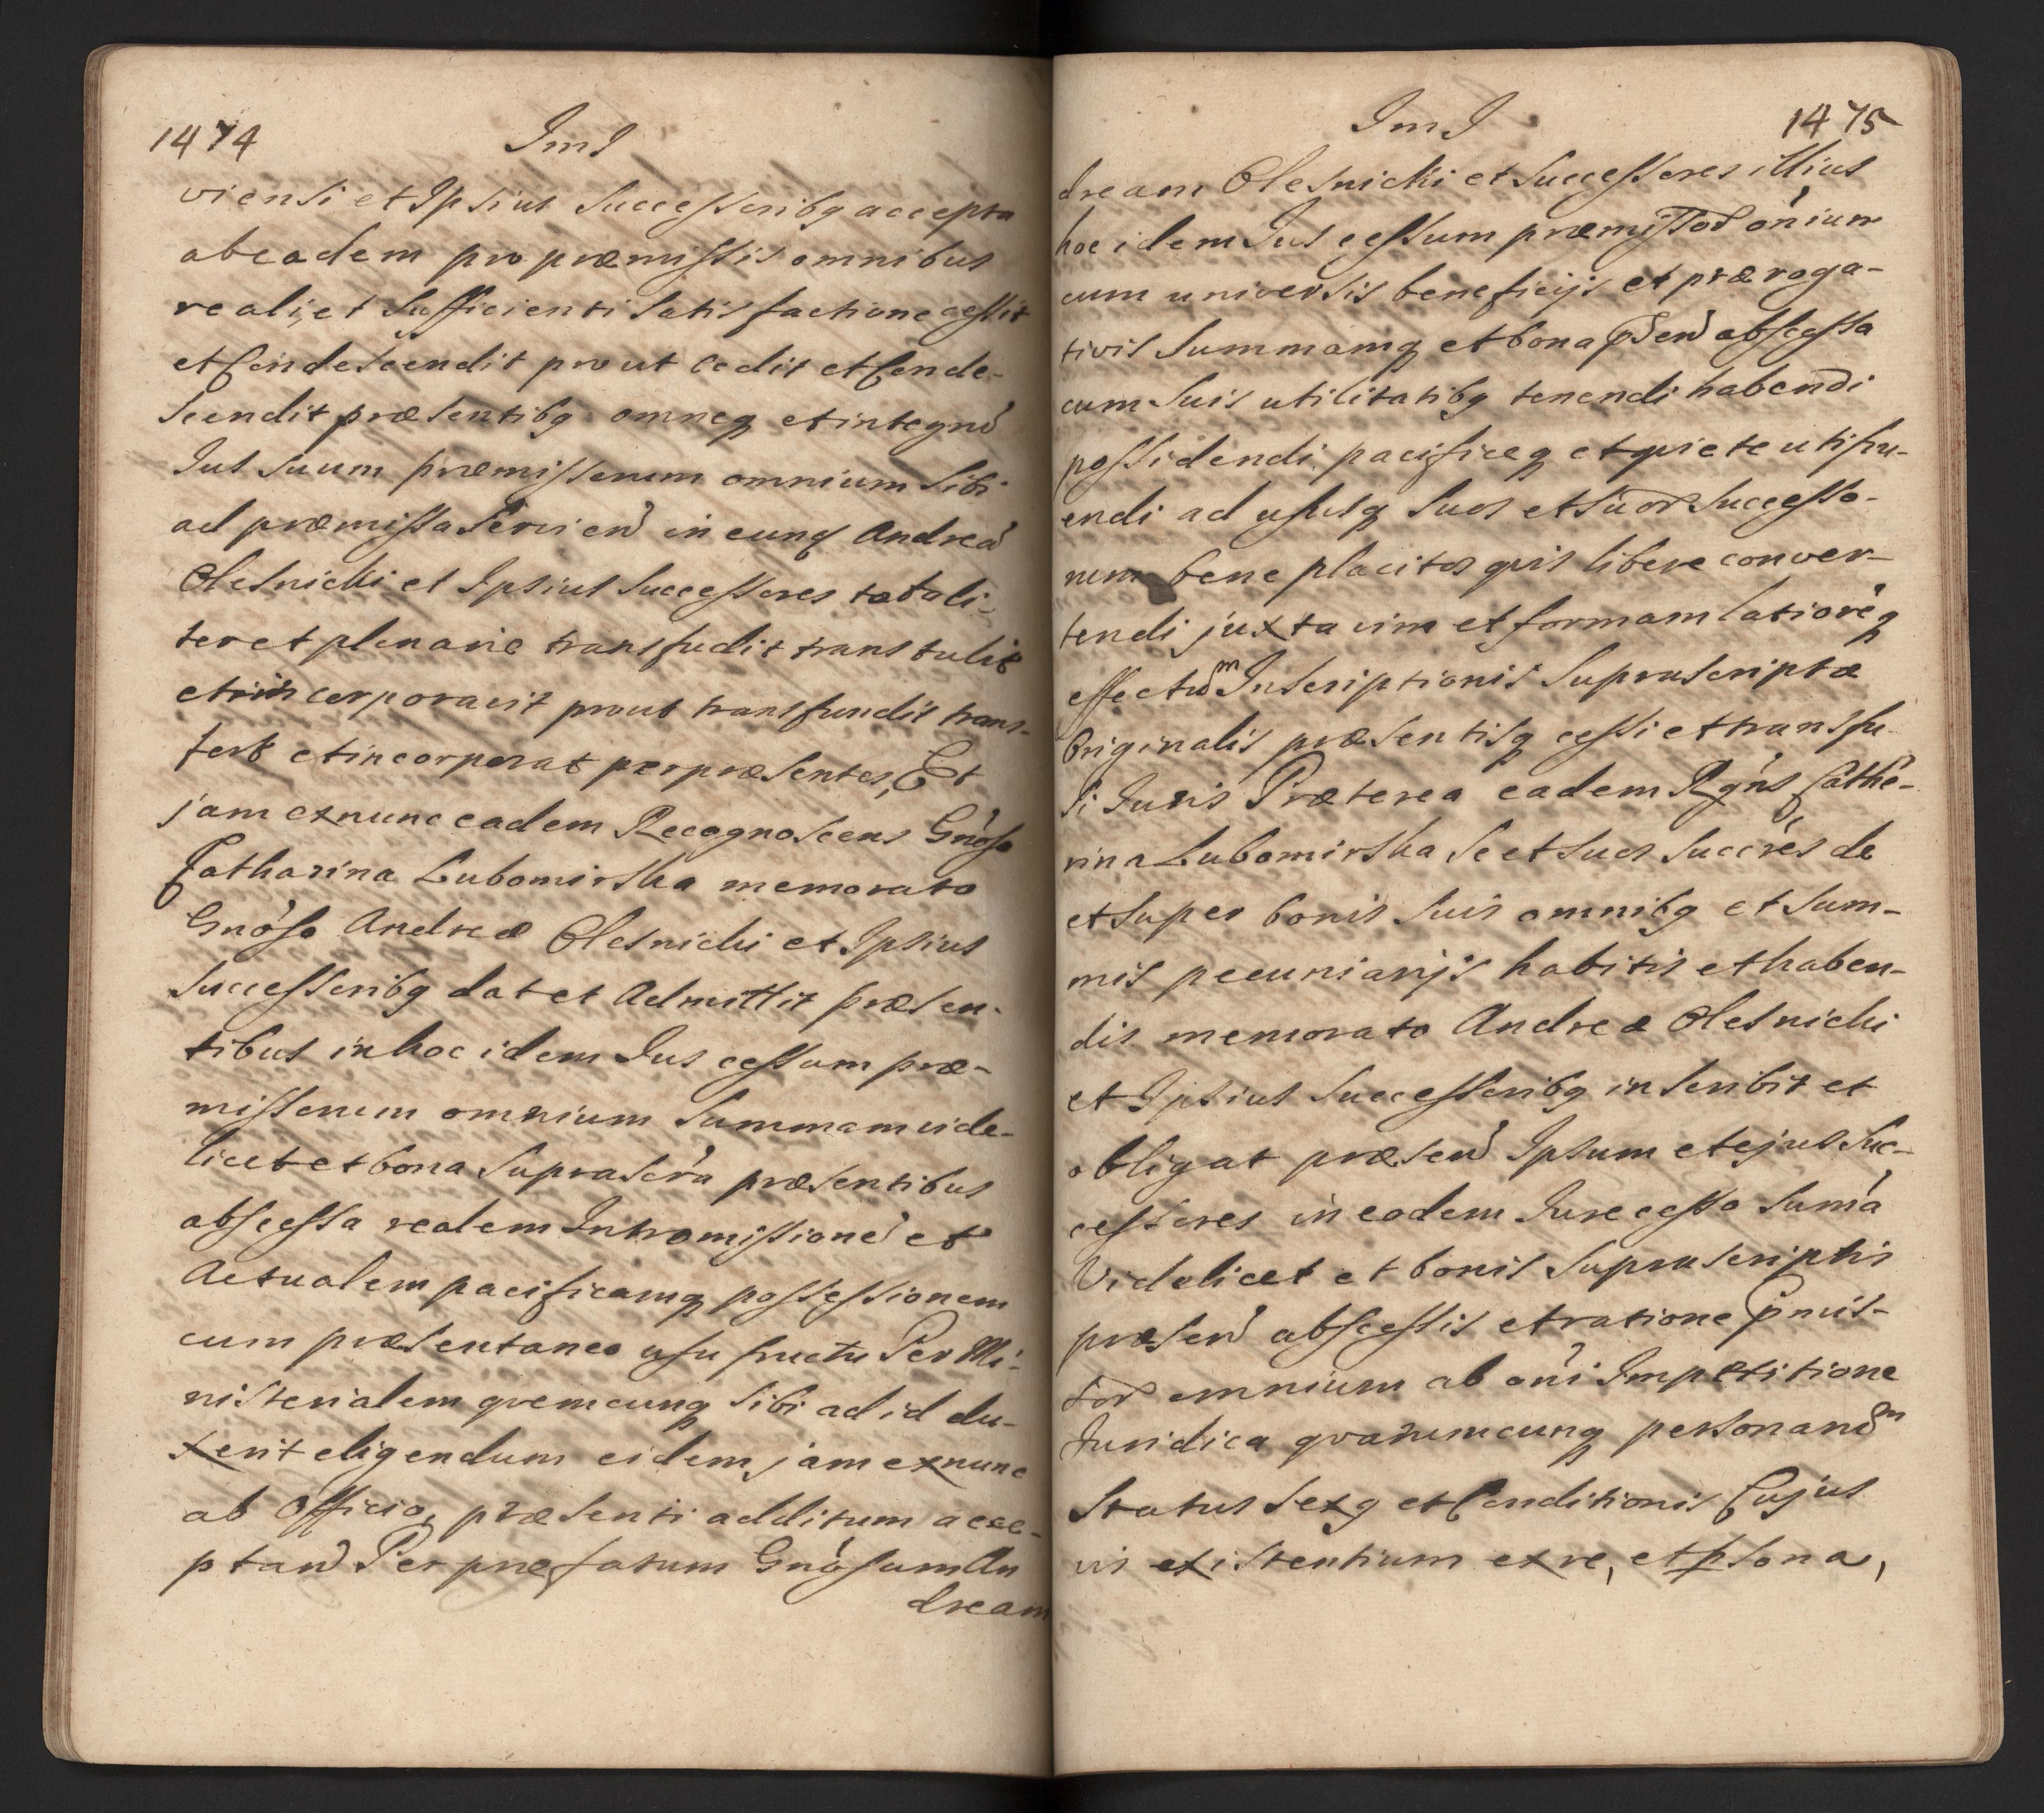 1474
ImI
viensi et Ipsius Successoribq accepta
ab eadem pro præmissis omnibus
reali, et Sufficienti Satisfactione cessit
et Condescendit prout Cedit et Conde-
scendit præsentibq omneq et integrũ
Ius Suum præmissorum omnium Sibi
ad præmissa Servieñ in eunq Andreã
Olesnicki et Ipsius Successores totali-
ter et plenarie transfudit transtulit
et incorporavit prout transfundit trans-
fert et incorporat per præsentes, Et
jam ex nunc eadem Recognoscens Gnõsa
Catharina Lubomirska memorato
Gnõso Andreæ Olesnicki et Ipsius
Successoribq dat et Admittit præsen-
tibus in hoc idem Ius cessum præ-
missorum omnium Summam vide-
licet et bona Suprascr̃a præsentibus
abscessa realem Intromissionẽ et
Actualem pacificamq possessionem
cum præsentaneo usu fructu Per Mi-
nisterialem qvemcunq Sibi ad id du-
xerit eligendum eidem jam ex nunc
ab Officio, præsenti additum acce-
ptañ Per præfatum Gnõsum An
dream
ImI
1475
dream Olesnicki et Successores illius
hoc idem Ius cessum præmissoꝝ om̃nium
cum universis beneficijs et præroga-
tivis Summamq et bona p̃señ abscessa
cum Suis utilitatibq tenendi habendi
possidendi, pacificeq et qviete utifru-
endi ad ususq Suos et Suoꝝ Successo-
rum bene placitos qvis libere conver-
tendi juxta vim et formam latiorẽq
effectum Inscriptionis Suprascriptæ
Originalis præsentisq cessi et transfu-
si Iuris Præterea eadem Rgñs Cathe-
rina Lubomirska Se et Suos Succr̃es de
et Super bonis Suis omnibq et Sum-
mis pecuniarijs habitis et haben-
dis memorato Andreæ Olesnicki
et Ipsius Successoribq inscribit et
obligat præseñ Ipsum et ejus Suc-
cessores in eodem Iure cesso Sum̃a
Videlicet et bonis Suprascriptis
præseñ abscessis et ratione p̃mis-
soꝝ omnium ab om̃i Impetitione
Iuridica qvarumcunq personarum
Status Sexq et Conditionis Cujus
vis existentium ex re, et psona,